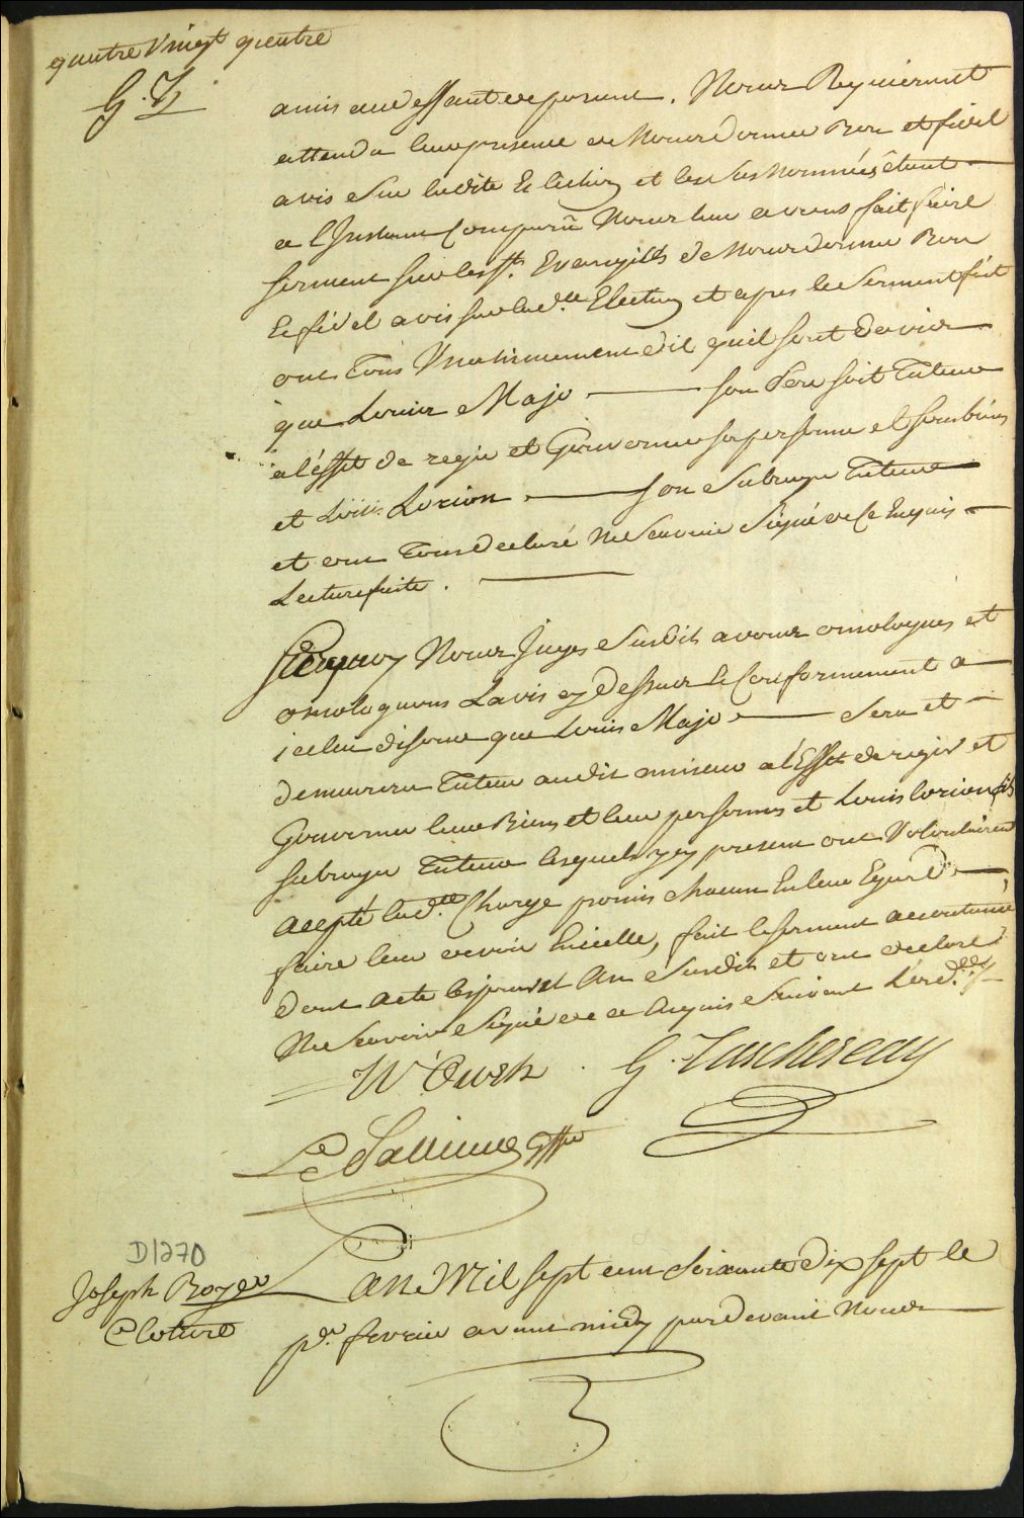 quatre Vingt quatre
G. T.
amis au deffaut de parens. Nous Requierent
attendu leur presence de Nous donner Bon et fidel
avis sur ladite Election et les Sus Nommées étant
a l'Instant Comparû Nous leur avons fait faire
serment sur les Sts. Evangilles de Nous donner Bon
et fidel avis sur lade. Election et apres le Serment fait
ont Tous Unanimement dit qu'il sont d'avis
que Louis Majo son Pere soit Tuteur
a l'éffet de regir et Gouverner sa personne et ses biens
et Louis Lorion son Subrogé Tuteur
et ont Tous declaré Ne Savoir Signé de Ce Enquis
Lecture faite.
Surquoy Nous Juges Susdit avons omologues et
omologuons L'avis cy Dessus et Conformement a
icelui disons que Louis Majo Sera et
demeurera Tuteur audit mineur a l'Effet de regir et
Gouverner leur Biens et leur personnes et Louis Lorion
subrogé Tuteur lesquels y ey present ont Volontairemt
acepté lade. Charge promis chacun En leur Egard
faire leur devoir En icelle, fait le serment accoutumé
dont acte les jour et An Susdits et ont declaré
Ne Savoir Signé de ce Enquis Suivant L'ord.
W Owen G. Taschereau
Le Pallieur Gffier
D1270
Joseph Boyer
Cloture
L'an Mil sept cent Soixante Dix sept le
pr. fevrier avant midy pardevant Nous